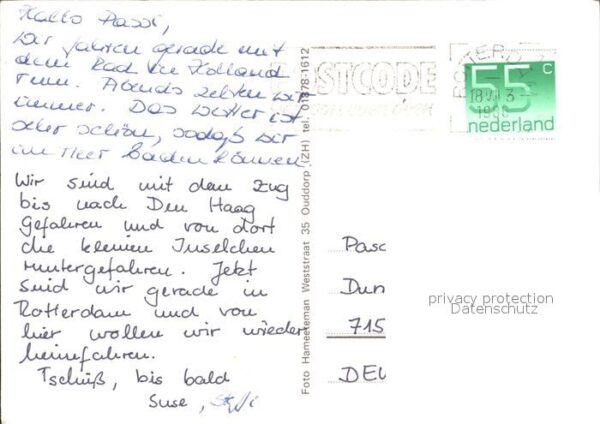 Hallo Passi,
wir fahren gerade mit
dem Rad in Holland
rum. Abends zelten wir
immer. Das Wetter ist
sehr schön, sodaß wir
im Meer baden können.
Wir sind mit dem Zug
bis nach Den Haag
gefahren und von dort
die kleinen Inselchen
runtergefahren. Jetzt
sind wir gerade in
Rotterdam und von
hier wollen wir wieder
heimfahren.
Tschüß, bis bald
Suse, Steffi
Foto Hameeteman Weststraat 35 Ouddorp (ZH) tel. 01878-1612
POSTCODE
ROTTERDAM
18 VII 3
55 c
nederland
Pasc
Dun
715
DEU
privacy protection
Datenschutz